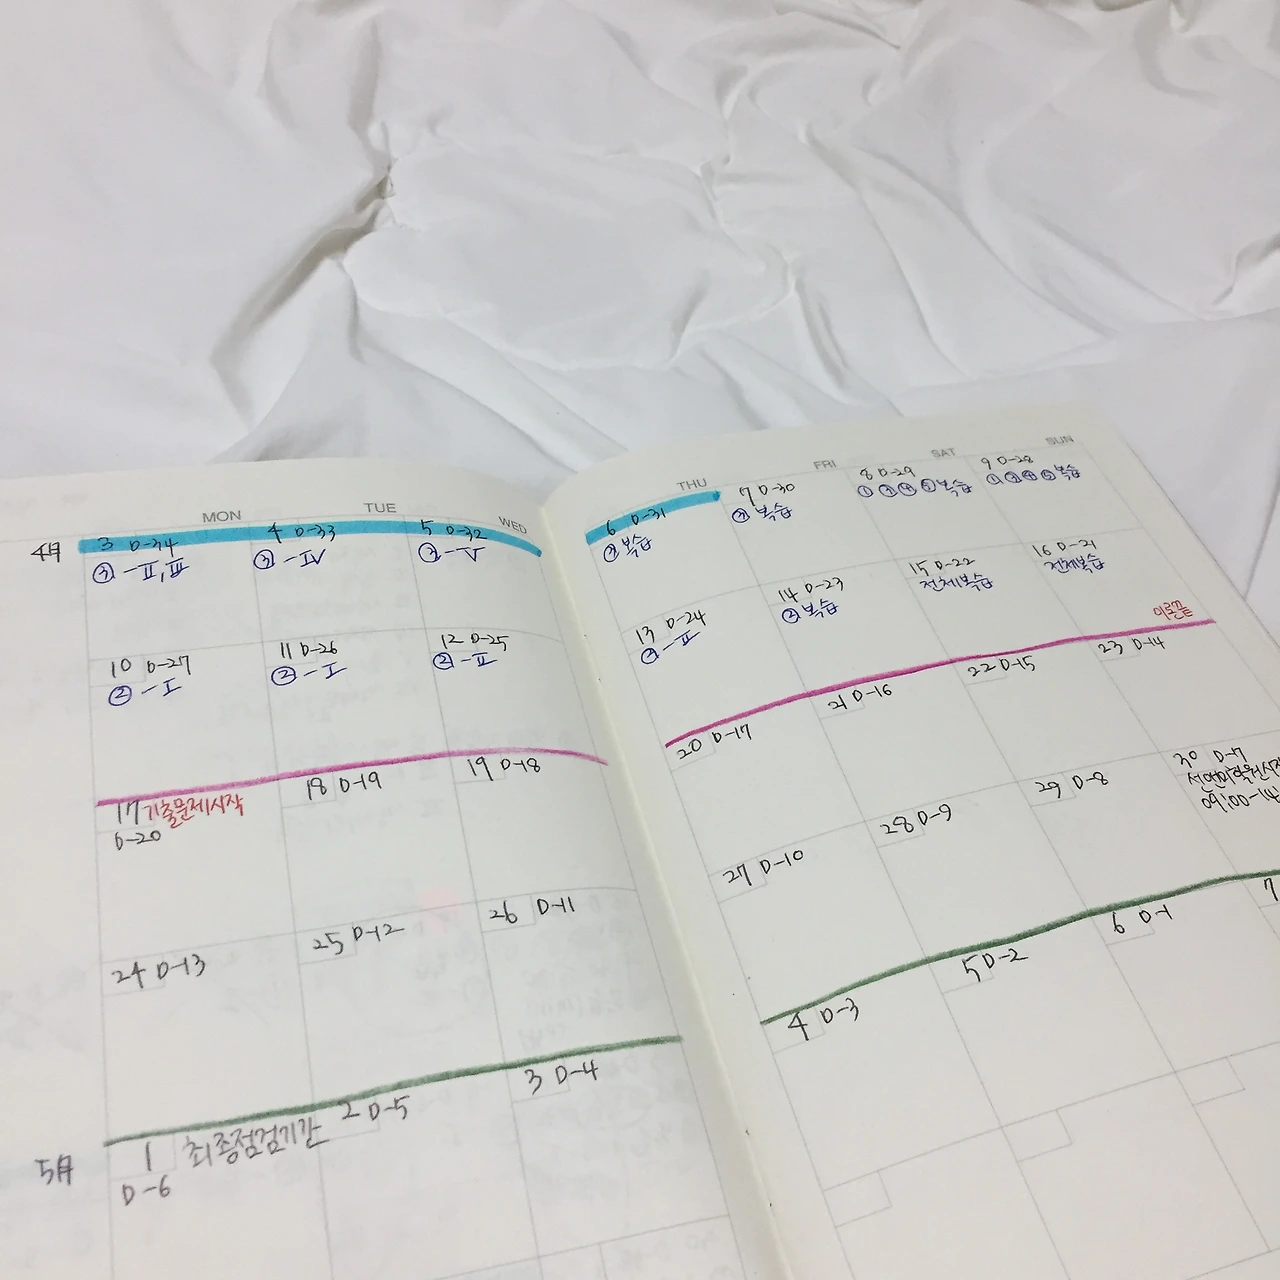 MON TUE WED THU FRI SAT SUN
4月
3 D-34
③-Ⅱ,Ⅲ
4 D-33
③-Ⅳ
5 D-32
③-Ⅴ
6 D-31
③복습
7 D-30
③ 복습
8 D-29
①③④⑤복습
9 D-28
①③④⑤복습
10 D-27
②-Ⅰ
11 D-26
②-Ⅰ
12 D-25
②-Ⅱ
13 D-24
②-Ⅱ
14 D-23
②복습
15 D-22
전체복습
16 D-21
전체복습
이론끝
17 기출문제시작
D-20
18 D-19
19 D-18
20 D-17
21 D-16
22 D-15
23 D-14
24 D-13
25 D-12
26 D-11
27 D-10
28 D-9
29 D-8
30 D-17
09:00-14
5月
1 최종점검기간
D-6
2 D-5
3 D-4
4 D-3
5 D-2
6 D-1
7